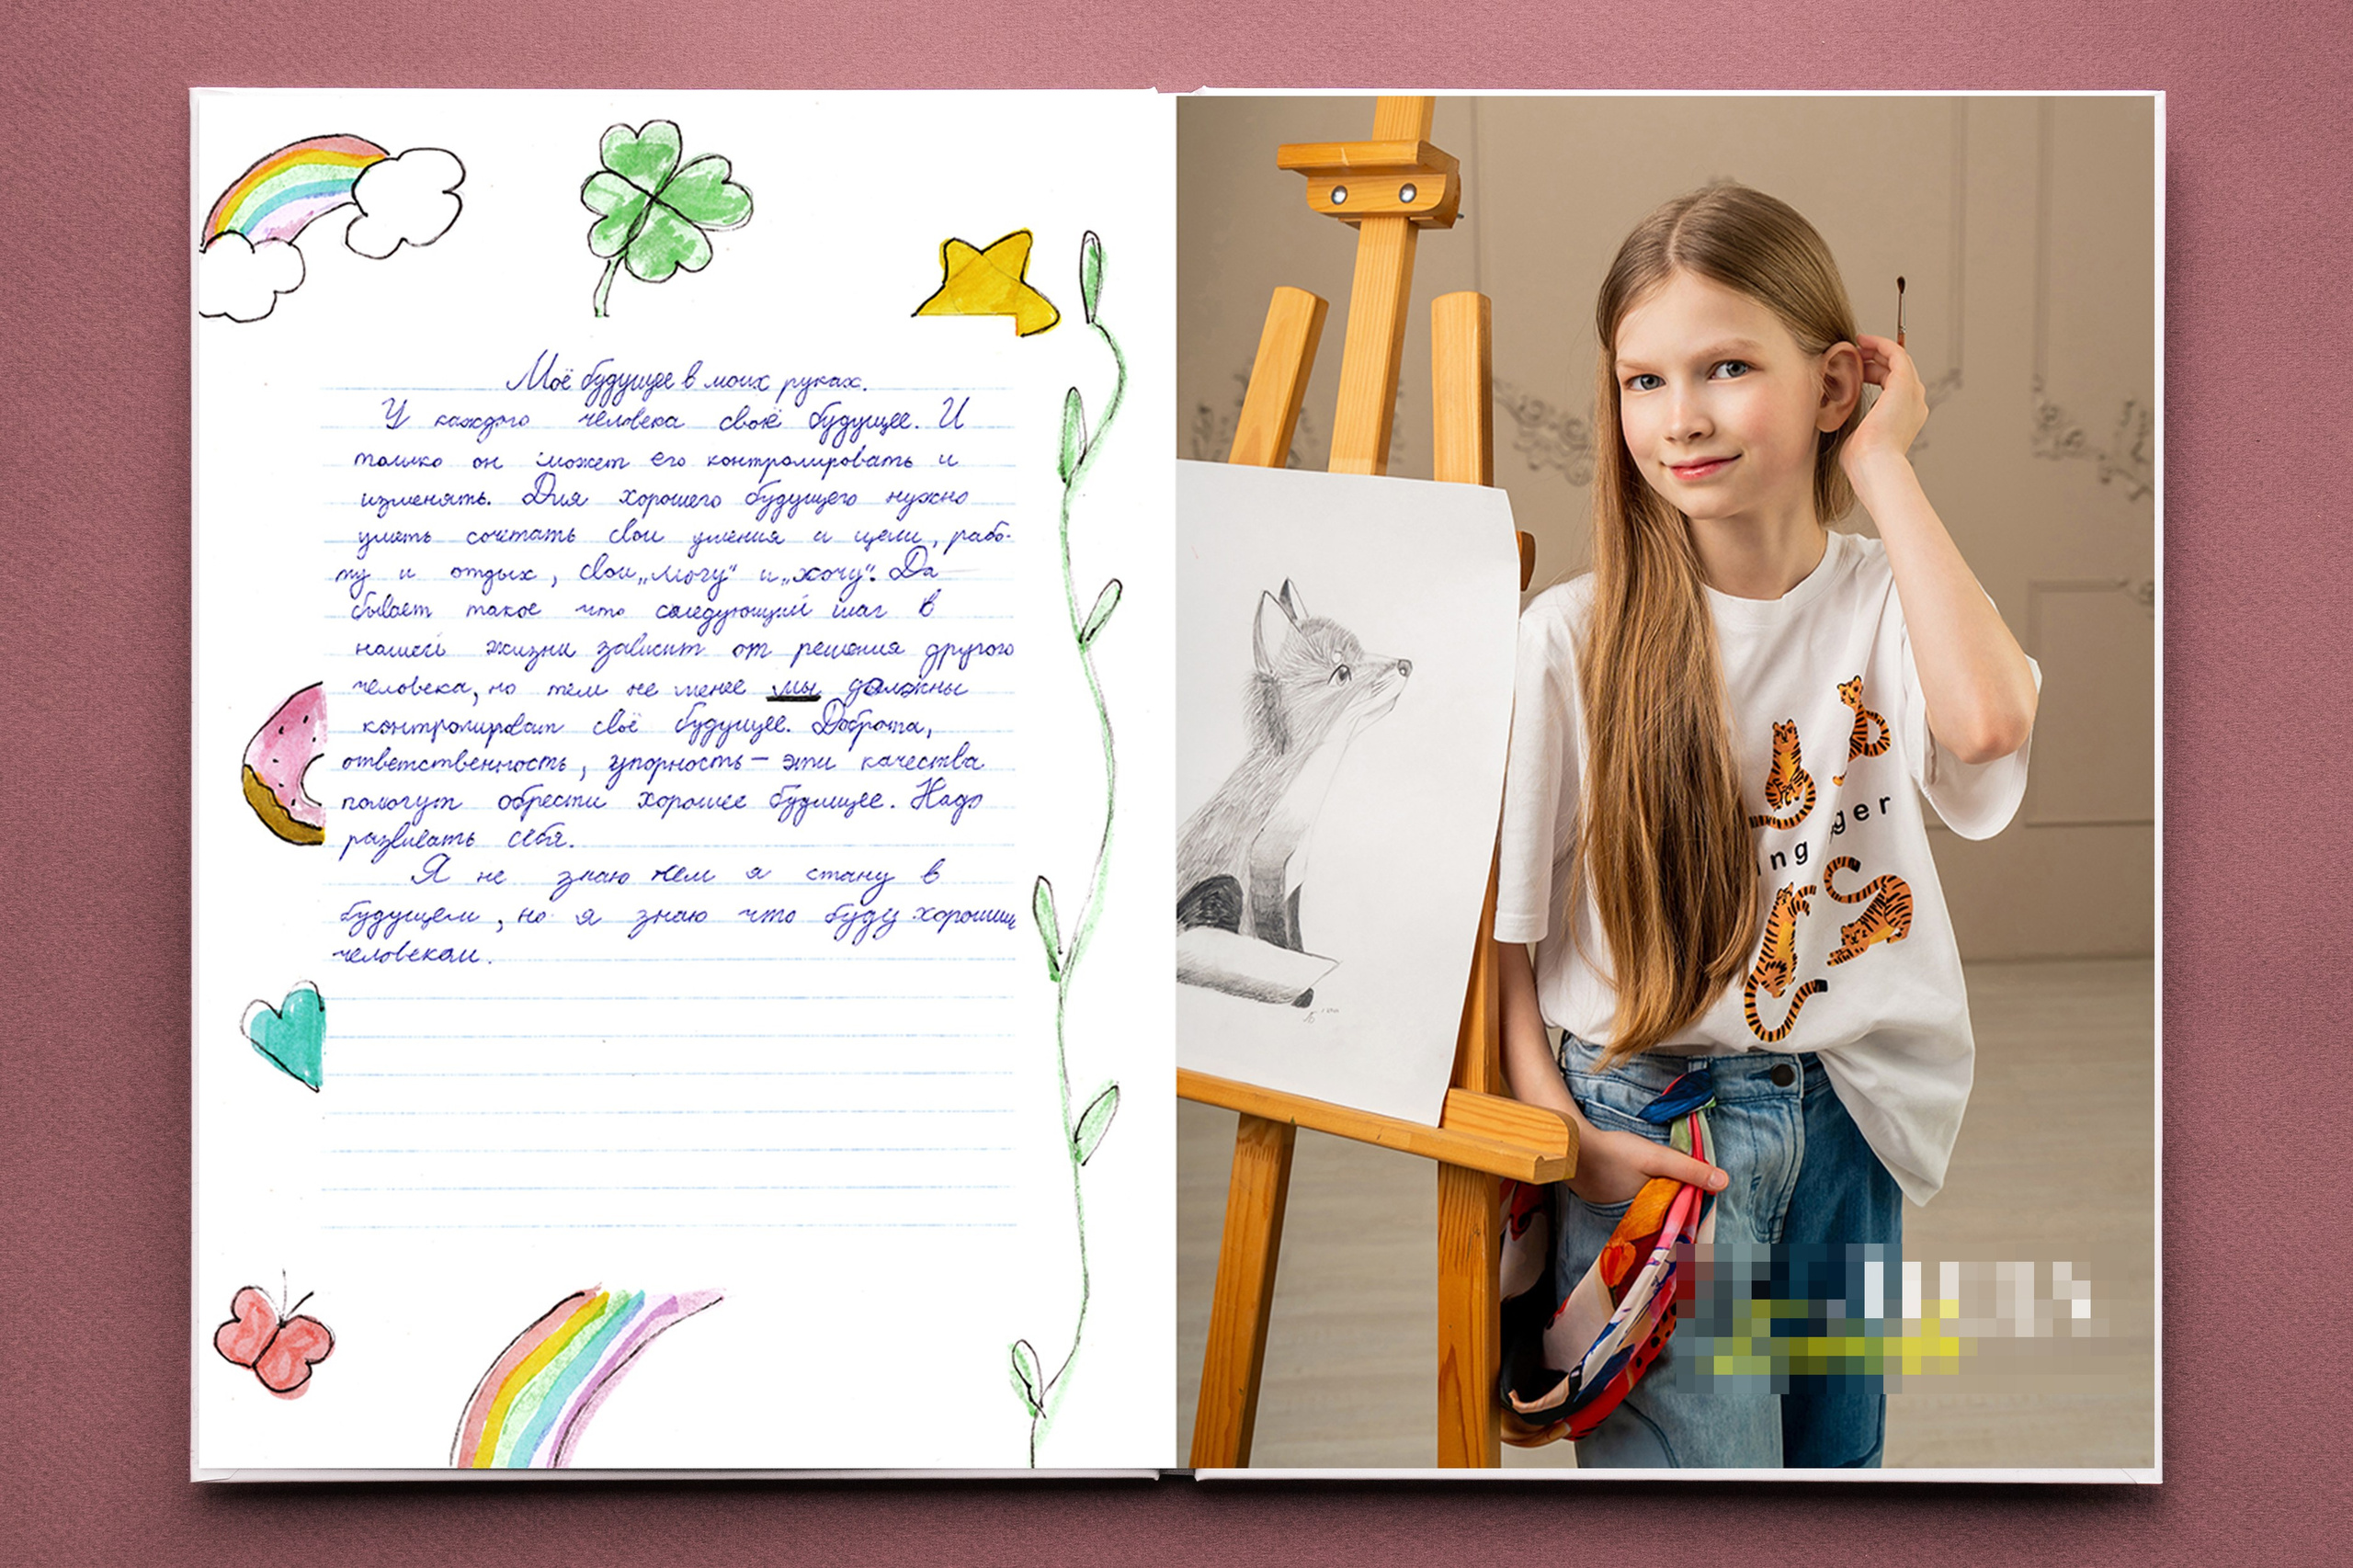 Моё будущее в моих руках.
У каждого человека своё будущее. И
только он может его контролировать и
изменять. Для хорошего будущего нужно
уметь сочетать свои умения и цели, рабо-
ту и отдых, свои „могу“ и „хочу“. Да
бывает такое что следующий шаг в
нашей жизни зависит от решения другого
человека, но тем не менее мы должны
контролироват своё будущее. Доброта,
ответственность, упорность – эти качества
помогут обрести хорошее будущее. Надо
развивать себя.
Я не знаю кем я стану в
будущем, но я знаю что буду хорошим
человеком.
ger
ng